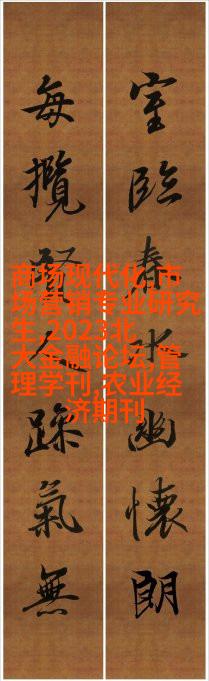 室臨春水幽懷朗
每攬賢人躁氣無
商场现代化,市
场营销专业研究
生,2023北
大金融论坛,管
理学刊,农业经
济期刊